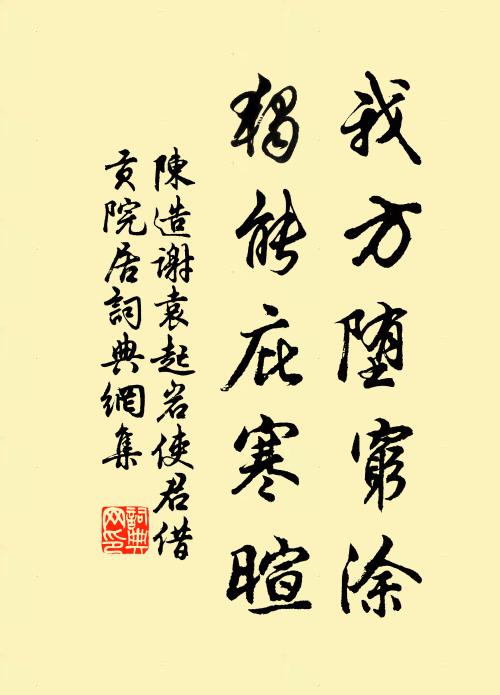 我方堕窮涂
獨能庇寒暄
陳造謝袁起岩使君借
貢院居詞典網集
詞典网印